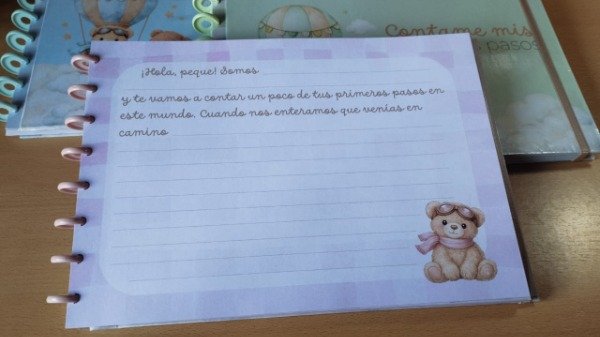 Contame mis
pasos
¡Hola, peque! Somos
y te vamos a contar un poco de tus primeros pasos en
este mundo. Cuando nos enteramos que venías en
camino